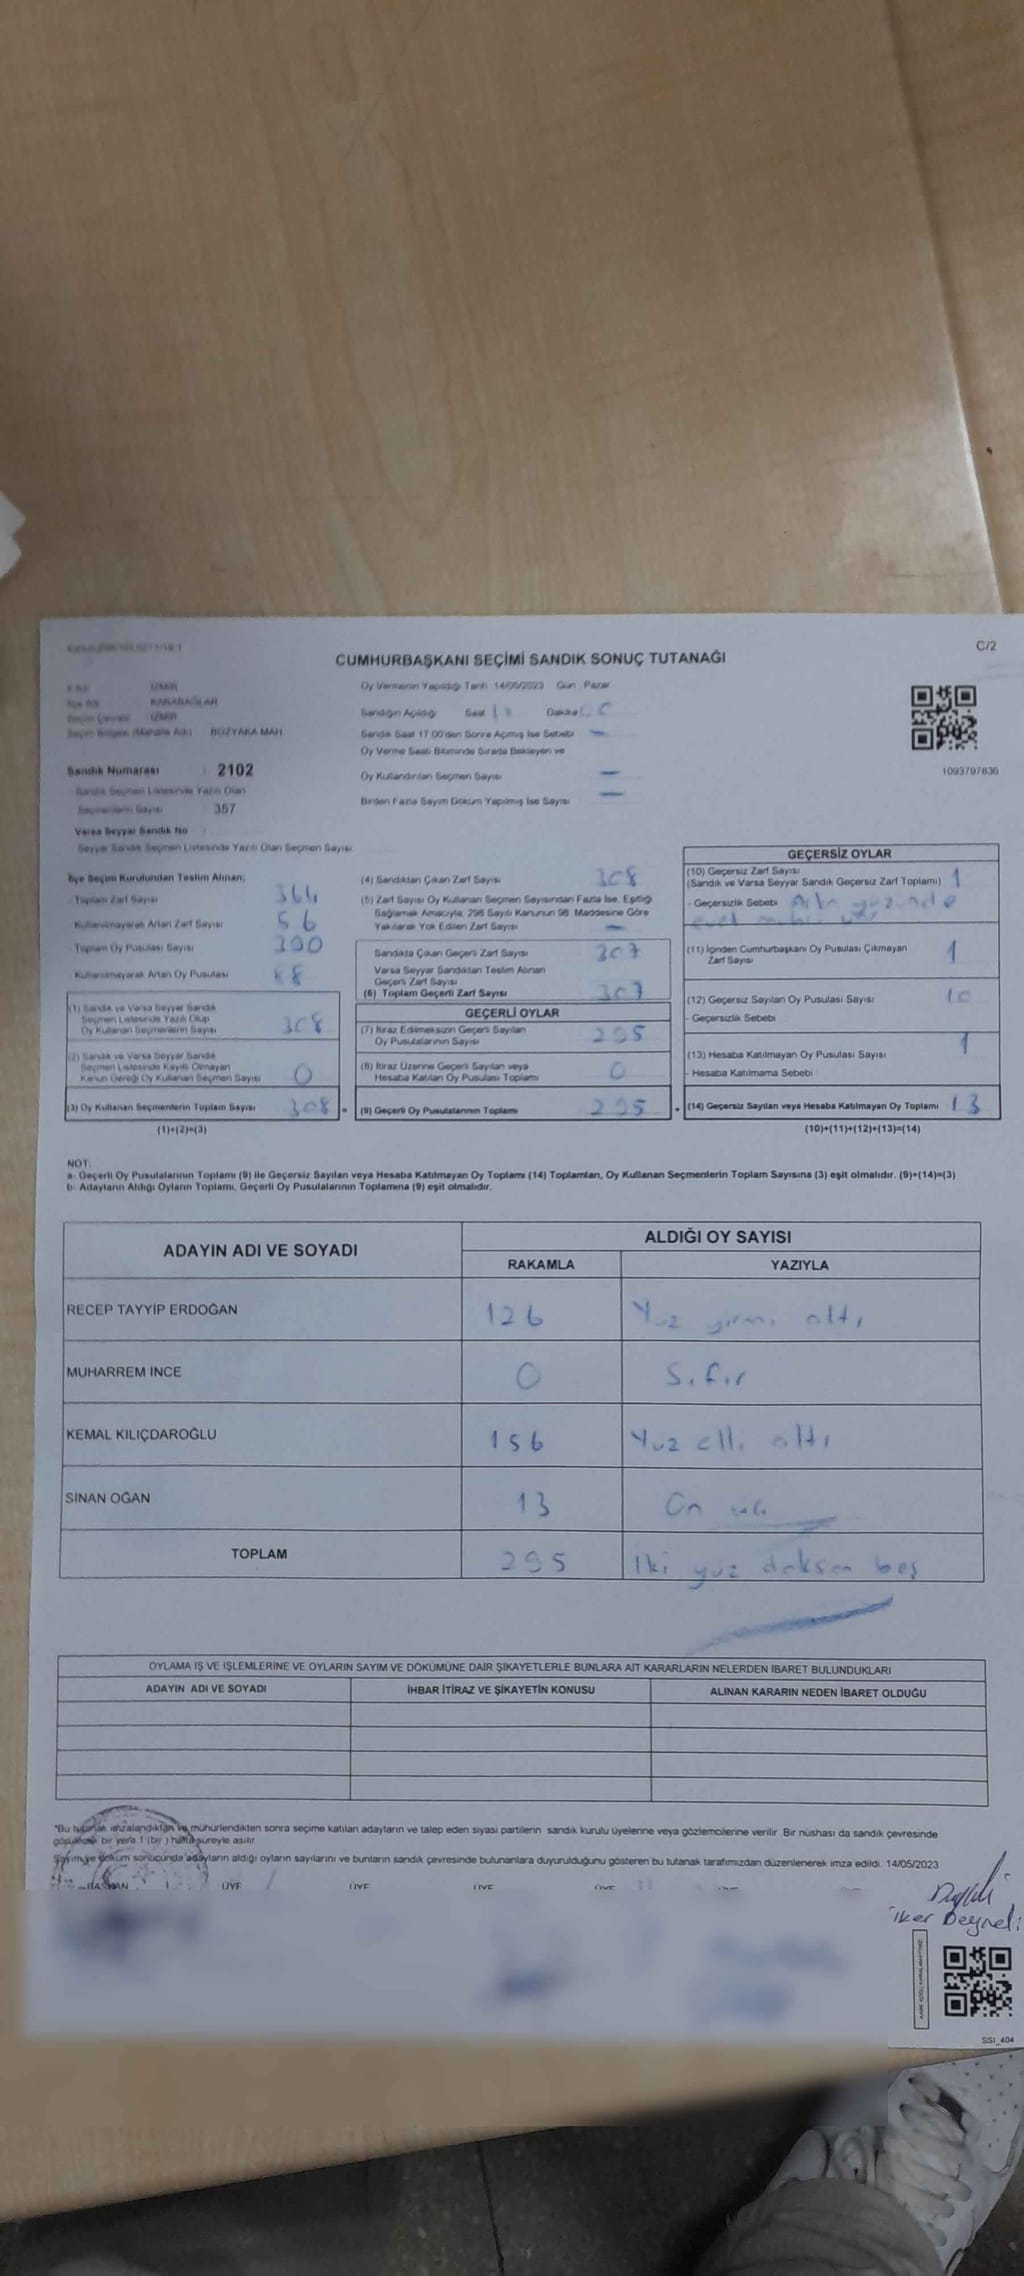 C/2
CUMHURBAŞKANI SEÇİMİ SANDIK SONUÇ TUTANAĞI
İZMİR
KARABAĞLAR
İZMİR
Seçim Bölgesi (Mahalle Adı) BOZYAKA MAH
Oy Vermenin Yapıldığı Tarih 14/05/2023 Gün Pazar
Sandığın Açıldığı Saat Dakika
Sandık Saat 17.00'den Sonra Açılmış İse Sebebi –
Oy Verme Saati Bitiminde Sırada Bekleyen ve
Oy Kullandırılan Seçmen Sayısı –
Birden Fazla Sayım Döküm Yapılmış İse Sayısı –
1093797836
Sandık Numarası : 2102
Sandık Seçmen Listesinde Yazılı Olan
Seçmenlerin Sayısı : 357
Varsa Seyyar Sandık No
Seyyar Sandık Seçmen Listesinde Yazılı Olan Seçmen Sayısı
İlçe Seçim Kurulundan Teslim Alınan;
- Toplam Zarf Sayısı 364
- Kullanılmayarak Artan Zarf Sayısı 56
- Toplam Oy Pusulası Sayısı 390
- Kullanılmayarak Artan Oy Pusulası 88
(1) Sandık ve Varsa Seyyar Sandık
Seçmen Listesinde Yazılı Olup
Oy Kullanan Seçmenlerin Sayısı 308
(2) Sandık ve Varsa Seyyar Sandık
Seçmen Listesinde Kayıtlı Olmayan
Kanun Gereği Oy Kullanan Seçmen Sayısı 0
(3) Oy Kullanan Seçmenlerin Toplam Sayısı 308 =
(1)+(2)=(3)
(4) Sandıktan Çıkan Zarf Sayısı 308
(5) Zarf Sayısı Oy Kullanan Seçmen Sayısından Fazla İse, Eşitliği
Sağlamak Amacıyla, 298 Sayılı Kanunun 98. Maddesine Göre
Yakılarak Yok Edilen Zarf Sayısı –
Sandıkta Çıkan Geçerli Zarf Sayısı 307
Varsa Seyyar Sandıktan Teslim Alınan
Geçerli Zarf Sayısı
(6) Toplam Geçerli Zarf Sayısı 307
GEÇERLİ OYLAR
(7) İtiraz Edilmeksizin Geçerli Sayılan
Oy Pusulalarının Sayısı 295
(8) İtiraz Üzerine Geçerli Sayılan veya
Hesaba Katılan Oy Pusulası Toplamı 0
(9) Geçerli Oy Pusulalarının Toplamı 295 +
GEÇERSİZ OYLAR
(10) Geçersiz Zarf Sayısı
(Sandık ve Varsa Seyyar Sandık Geçersiz Zarf Toplamı) 1
- Geçersizlik Sebebi Arka yüzünde
evet
(11) İçinden Cumhurbaşkanı Oy Pusulası Çıkmayan
Zarf Sayısı 1
(12) Geçersiz Sayılan Oy Pusulası Sayısı 10
- Geçersizlik Sebebi
(13) Hesaba Katılmayan Oy Pusulası Sayısı 1
- Hesaba Katılmama Sebebi
(14) Geçersiz Sayılan veya Hesaba Katılmayan Oy Toplamı 13
(10)+(11)+(12)+(13)=(14)
NOT:
a- Geçerli Oy Pusulalarının Toplamı (9) ile Geçersiz Sayılan veya Hesaba Katılmayan Oy Toplamı (14) Toplamları, Oy Kullanan Seçmenlerin Toplam Sayısına (3) eşit olmalıdır. (9)+(14)=(3)
b- Adayların Aldığı Oyların Toplamı, Geçerli Oy Pusulalarının Toplamına (9) eşit olmalıdır.
ADAYIN ADI VE SOYADI ALDIĞI OY SAYISI
RAKAMLA YAZIYLA
RECEP TAYYİP ERDOĞAN 126 Yüz yirmi altı
MUHARREM İNCE 0 Sıfır
KEMAL KILIÇDAROĞLU 156 Yuz elli altı
SİNAN OĞAN 13 On
TOPLAM 295 İki yüz doksan beş
OYLAMA İŞ VE İŞLEMLERİNE VE OYLARIN SAYIM VE DÖKÜMÜNE DAİR ŞİKAYETLERLE BUNLARA AİT KARARLARIN NELERDEN İBARET BULUNDUKLARI
ADAYIN ADI VE SOYADI İHBAR İTİRAZ VE ŞİKAYETİN KONUSU ALINAN KARARIN NEDEN İBARET OLDUĞU
"Bu tutanak imzalandıktan ve mühürlendikten sonra seçime katılan adayların ve talep eden siyasi partilerin sandık kurulu üyelerine veya gözlemcilerine verilir. Bir nüshası da sandık çevresinde
görülecek bir yere 1 (bir) hafta süreyle asılır
Sayım ve döküm sonucunda adayların aldığı oyların sayılarını ve bunların sandık çevresinde bulunanlara duyurulduğunu gösteren bu tutanak tarafımızdan düzenlenerek imza edildi. 14/05/2023
BAŞKAN ÜYE ÜYE ÜYE ÜYE
İlker Deyneli
SSI_404